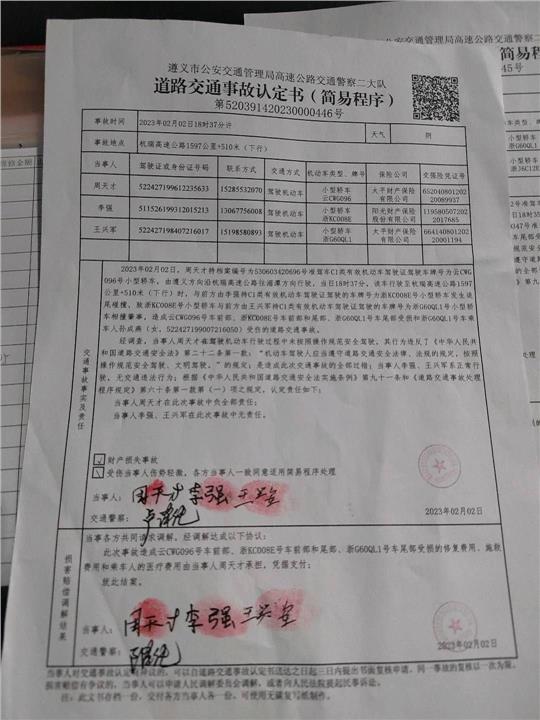 遵义市公安交通管理局高速公路交通警察二大队
道路交通事故认定书（简易程序）
第520391420230000446号
事故时间 2023年02月02日18时37分许 天气 阴
事故地点 杭瑞高速公路1597公里+510米（下行）
当事人 驾驶证或身份证号码 联系方式 交通方式 机动车类型、牌号 保险公司 交强险凭证号
周天才 522427199611235633 15285532070 驾驶机动车 小型轿车 云CWG096 太平财产保险有限公司 65204080120220089937
李强 511526199312015213 13067756008 驾驶机动车 小型轿车 浙KC008E 阳光财产保险股份有限公司 1195805072022017685
王兴军 522427198407216017 15198580893 驾驶机动车 小型轿车 浙G60QL1 太平财产保险有限公司 66414080120220001194
交通事故事实及责任
2023年02月02日，周天才持档案编号为530603420696号准驾车C1类有效机动车驾驶证驾驶车牌号为云CWG
096号小型轿车，由遵义方向沿杭瑞高速公路往湄潭方向行驶，当日18时37分，该车行驶至杭瑞高速公路1597
公里+510米（下行）时，与前方由李强持C1类有效机动车驾驶证驾驶的车牌号为浙KC008E号小型轿车发生追
尾碰撞，致浙KC008E号小型轿车与前方由王兴军持C1类有效机动车驾驶证驾驶的车牌号为浙G60QL1号小型
轿车相撞肇事，造成云CWG096号车前部、浙KC008E号车前部和尾部、浙G60QL1号车尾部受损和浙G60QL1号车乘
车人孙成燕（女，522427199007216050）受伤的道路交通事故。
经调查，当事人周天才在驾驶机动车行驶过程中未按照操作规范安全驾驶，其行为违反了《中华人民
共和国道路交通安全法》第二十二条第一款：“机动车驾驶人应当遵守道路交通安全法律、法规的规定，按照
操作规范安全驾驶、文明驾驶。”的规定；是造成此次事故的全部过错；当事人李强、王兴军系正常行
驶，无交通违法行为；根据《中华人民共和国道路交通安全法实施条例》第九十一条和《道路交通事故处理
程序规定》第六十条第一款第（一）项之规定，认定责任如下：
当事人周天才在此次事故中负全部责任；
当事人李强、王兴军在此次事故中无责任。
财产损失事故
受伤当事人伤势轻微，各方当事人一致同意适用简易程序处理
当事人： 周天才 李强 王兴军
交通警察：
2023年02月02日
损害赔偿调解结果
当事各方共同请求调解，经调解达成以下协议：
此次事故造成云CWG096号车前部、浙KC008E号车前部和尾部、浙G60QL1号车尾部受损的修复费用、施救
费用和乘车人的医疗费用由当事人周天才承担，凭据支付；
就此结案。
当事人： 周天才 李强 王兴军
交通警察：
2023年02月02日
当事人对交通事故认定有异议的，可以自道路交通事故认定书送达之日起三日内提出书面复核申请，同一事故的复核以一次为限。
损害赔偿有争议的，当事人可以申请人民调解委员会调解，或者向人民法院提起民事诉讼。
注：此文书存档一份，交付各方当事人各一份，可使用无碳复写纸制作。